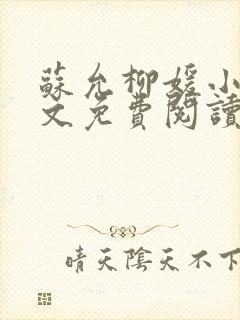 蘇允柳媛小
文免費閱讀
晴天陰天不下